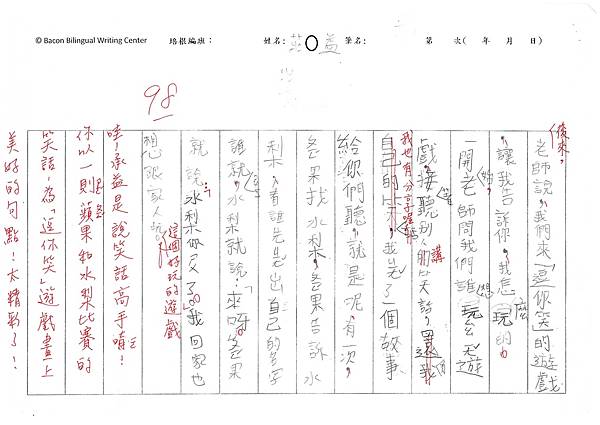 © Bacon Bilingual Writing Center 培根編班： 姓名： 筆名： 第 次( 年 月 日)
98
後來，
老師說，我們來「逗你笑」的遊戲
，讓我告訴你，我怎麼玩的。
一開始老師問我們誰想玩逗笑遊
戲，接著聽別人講笑話，還我
我也有分享喔！
自己的笑話，我先了一個故事
給你們聽，就是呢，有一次，
蘋果找水梨，蘋果告訴水
梨，看誰先喊出自己的名字
誰就，水梨就說：「來呀」蘋果
就說：水梨你又了。」我回家也
想跟家人玩這個好玩的遊戲
哇！承益是說笑話高手唷！
你以一則蘋果和水梨比賽的
笑話，為「逗你笑」遊戲畫上
美好的句點！太精彩了！